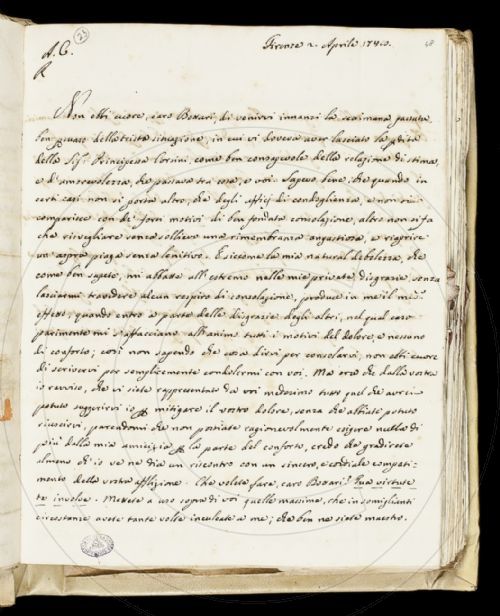 25
48
A. C.
R
Firenze 2. Aprile 1740.
Non ebbi cuore, caro Bottari, di venirvi innanzi la settimana passata,
ben persuaso della trista situazione, in cui vi doveva aver lasciato la pdita
della Sigr. Principessa Corsini, come ben consapevole della relazione di stima,
e d'amorevolezza, che passava tra essa, e voi. Sapevo bene, che quando in
certi casi non si porta altro, che degli uffizj di condoglienza, e non si
comparisce con de' forti motivi di ben fondata consolazione, altro non si fa
che risvegliare senza sollievo una rimembranza angustiosa, e riaprire
un'aspra piaga senza lenitivo. E siccome la mia natural debolezza, che
come ben sapete, mi abbatte all'estremo nelle mie private disgrazie, senza
lasciarmi travedere alcun respiro di consolazione, produce in me il med.o
effetto, quando entro a parte delle disgrazie degli altri, nel qual caso
parimente mi s'affacciano all'animo tutti i motivi del dolore, e nessuno
di conforto; così non sapendo che cosa dirvi per consolarvi, non ebbi cuore
di scrivervi per semplicemente condolermi con voi. Ma ora che dalla vostra
io ravviso, che vi siete rappresentato da voi medesimo tutto quel che avrei
potuto suggerirvi io p mitigare il vostro dolore, senza che abbiate potuto
riuscirvi, parendomi che non potiate ragionevolmente esigere nulla di
più dalla mia amicizia p la parte del conforto, credo che gradirete
almeno che io ve ne dia un riscontro con un sincero, e cordiale compati-
mento della vostra afflizione. Che volete fare, caro Bottari? Tua virtute
te involve. Mettete a uso sopra di voi quelle massime, che in somiglianti
circostanze avete tante volte inculcate a me; che ben ne siete maestro.